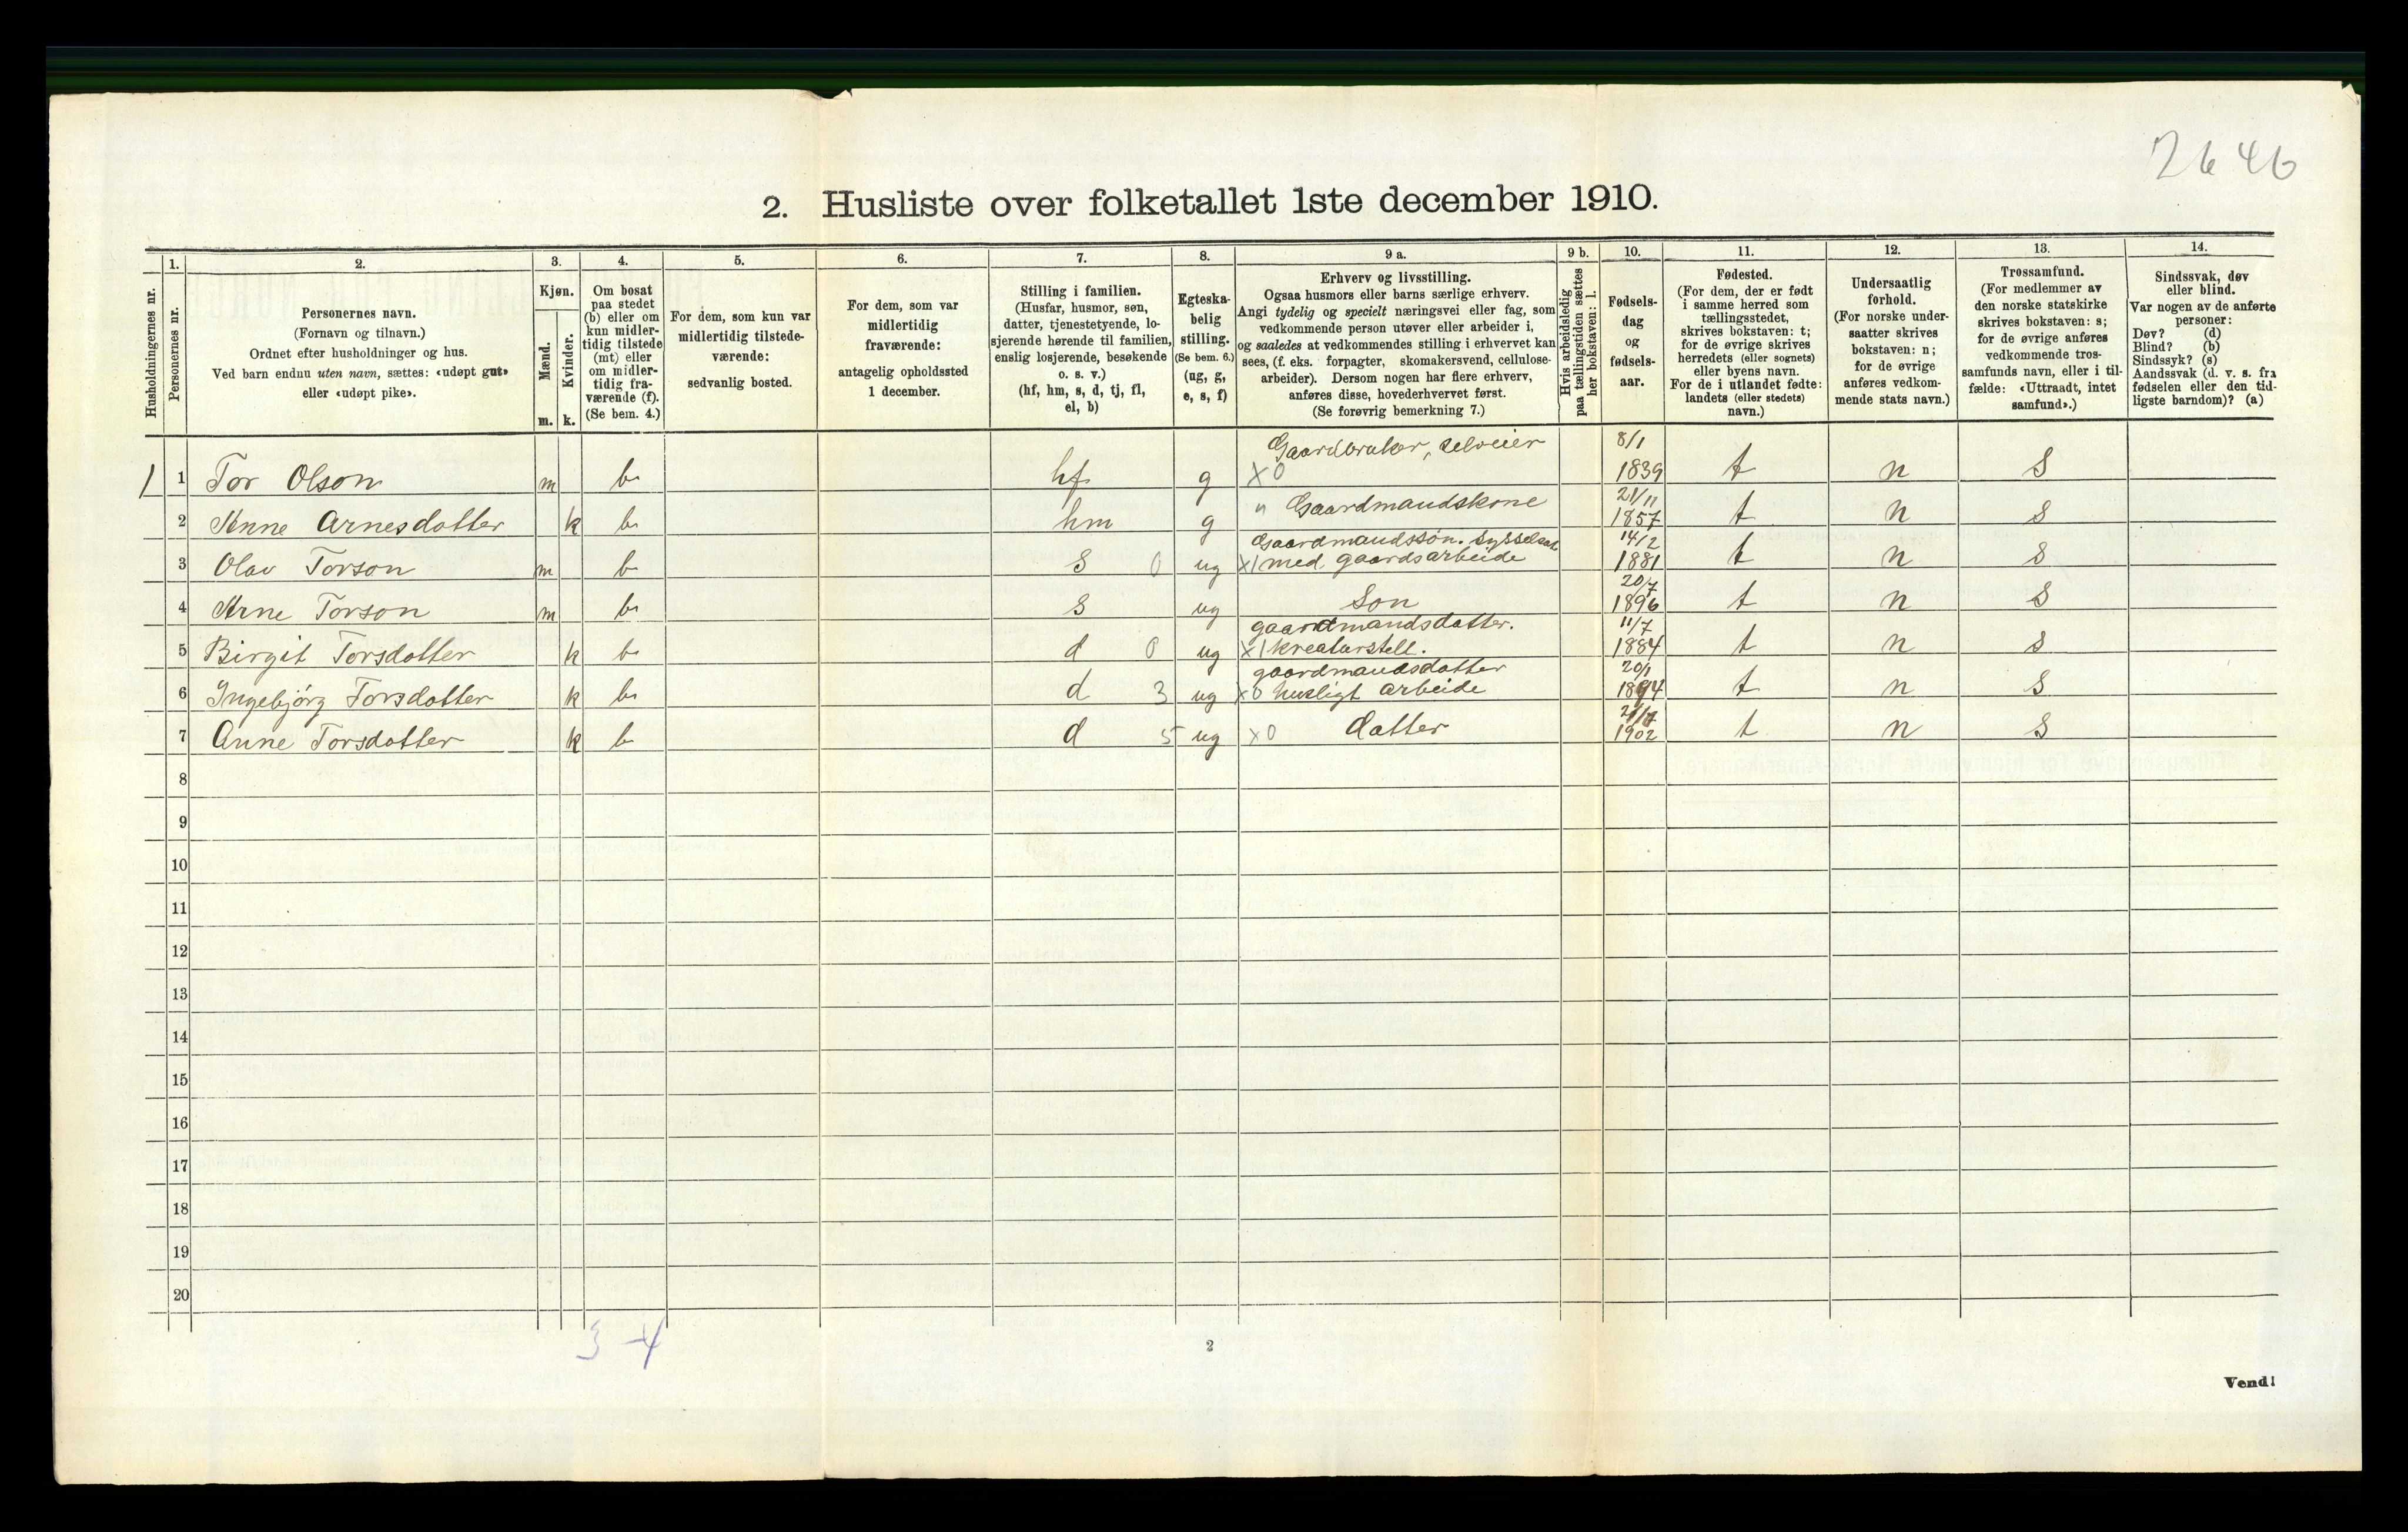 2646
2. Husliste over folketallet 1ste december 1910.
Husholdningernes nr.
1.
Personernes nr.
2.
Personernes navn.
(Fornavn og tilnavn.)
Ordnet efter husholdninger og hus.
Ved barn endnu uten navn, sættes: «udøpt gut»
eller «udøpt pike».
3.
Kjøn.
Mænd.
m.
Kvinder.
k.
4.
Om bosat
paa stedet
(b) eller om
kun midler-
tidig tilstede
(mt) eller
om midler-
tidig fra-
værende (f).
(Se bem. 4.)
5.
For dem, som kun var
midlertidig tilstede-
værende:
sedvanlig bosted.
6.
For dem, som var
midlertidig
fraværende:
antagelig opholdssted
1 december.
7.
Stilling i familien.
(Husfar, husmor, søn,
datter, tjenestetyende, lo-
sjerende hørende til familien,
enslig losjerende, besøkende
o. s. v.)
(hf, hm, s, d, tj, fl,
el, b)
8.
Egteska-
belig
stilling.
(Se bem. 6.)
(ug, g,
e, s, f)
9 a.
Erhverv og livsstilling.
Ogsaa husmors eller barns særlige erhverv.
Angi tydelig og specielt næringsvei eller fag, som
vedkommende person utøver eller arbeider i,
og saaledes at vedkommendes stilling i erhvervet kan
sees, (f. eks. forpagter, skomakersvend, cellulose-
arbeider). Dersom nogen har flere erhverv,
anføres disse, hovederhvervet først.
(Se forøvrig bemerkning 7.)
9 b.
Hvis arbeidsledig
paa tællingstiden sættes
her bokstaven: l.
10.
Fødsels-
dag
og
fødsels-
aar.
11.
Fødested.
(For dem, der er født
i samme herred som
tællingsstedet,
skrives bokstaven: t;
for de øvrige skrives
herredets (eller sognets)
eller byens navn.
For de i utlandet fødte:
landets (eller stedets)
navn.)
12.
Undersaatlig
forhold.
(For norske under-
saatter skrives
bokstaven: n;
for de øvrige
anføres vedkom-
mende stats navn.)
13.
Trossamfund.
(For medlemmer av
den norske statskirke
skrives bokstaven: s;
for de øvrige anføres
vedkommende tros-
samfunds navn, eller i til-
fælde: «Uttraadt, intet
samfund».)
14.
Sindssvak, døv
eller blind.
Var nogen av de anførte
personer:
Døv? (d)
Blind? (b)
Sindssyk? (s)
Aandssvak (d. v. s. fra
fødselen eller den tid-
ligste barndom)? (a)
Gaardbruker, selveier 8/1
1 1 Tor Olson m b hf g X0 1839 t n s
21/11
2 Anne Arnesdotter k b hm g " Gaardmandskone 1857 t n s
Gaardmandssøn. Sysselsat 14/2
3 Olav Torson m b s 0 ug X1 med gaardsarbeide 1881 t n s
20/7
4 Arne Torson m b s ug Søn 1896 t n s
gaardmandsdatter. 11/7
5 Birgit Torsdotter k b d 0 ug X1 kreaturstell. 1884 t n s
gaardmandsdatter 20/1
6 Ingebjørg Torsdotter k b d 3 ug X0 husligt arbeide 1894 t n s
21/7
7 Anne Torsdotter k b d 5 ug X0 datter 1902 t n s
8
9
10
11
12
13
14
15
16
17
18
19
20
3 4
2
Vend!